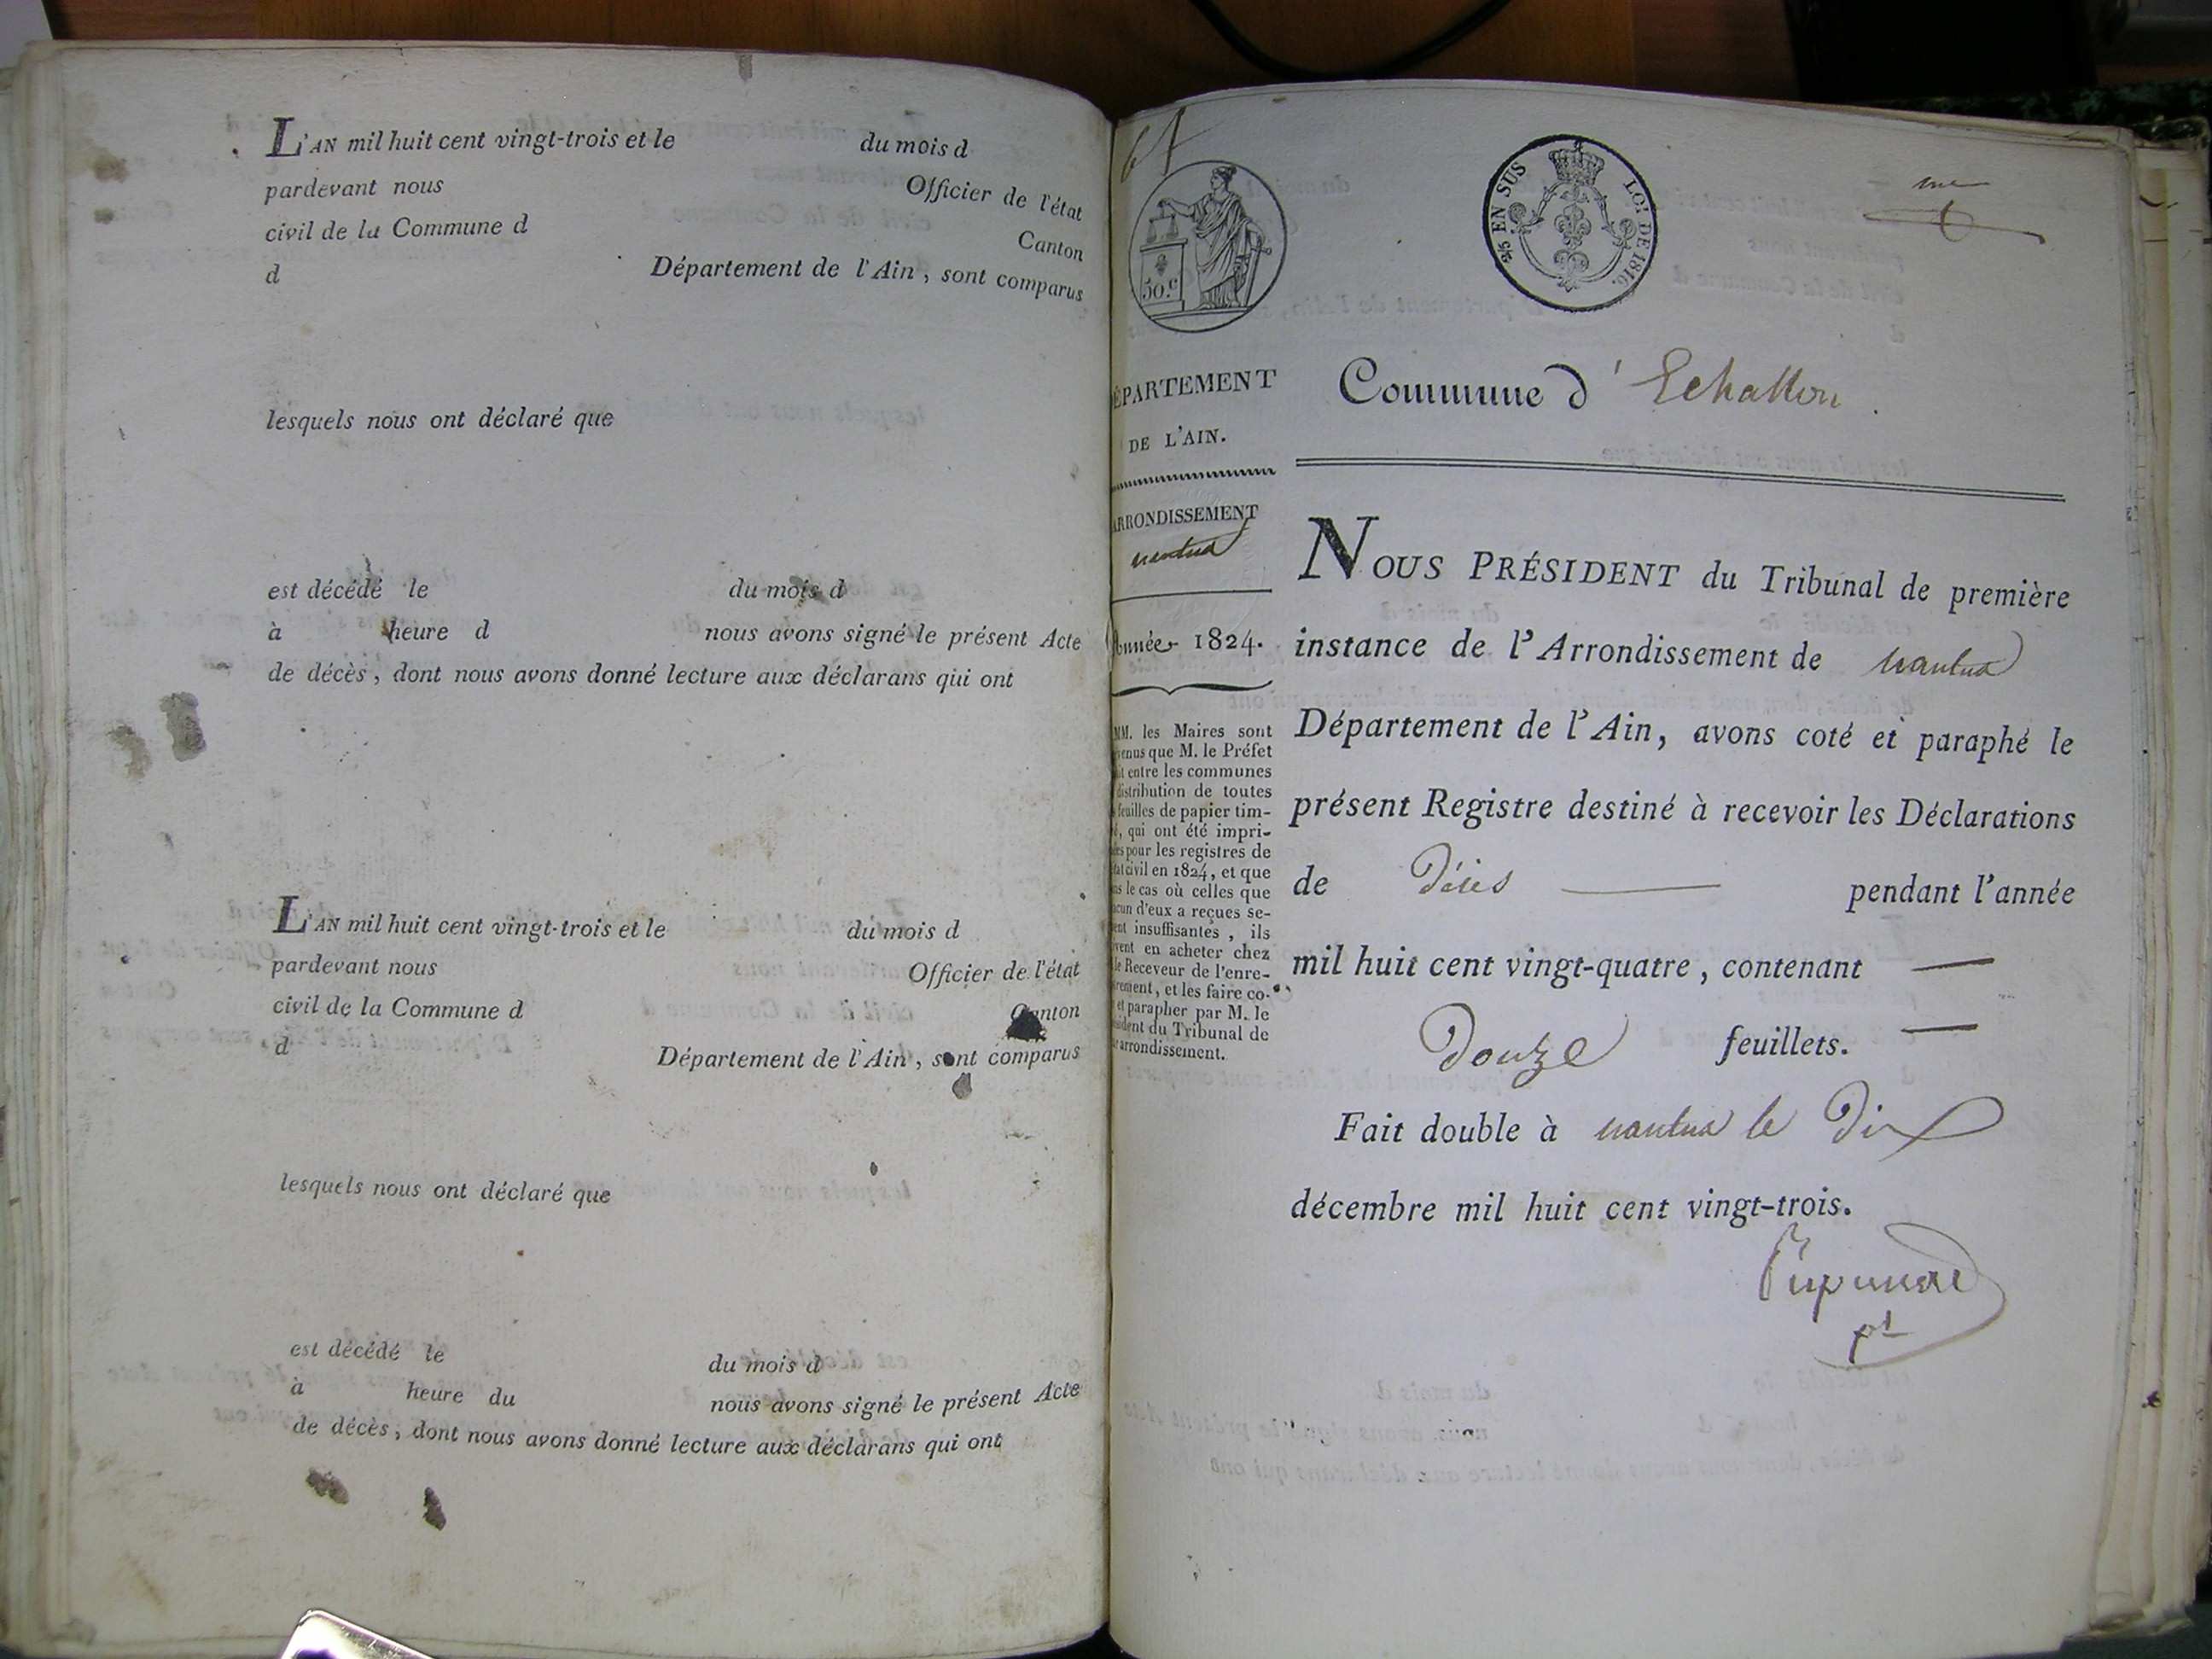 L'AN mil huit cent vingt-trois et le du mois d
pardevant nous Officier de l'état
civil de la Commune d Canton
d Département de l'Ain, sont comparus
lesquels nous ont déclaré que
est décédé le du mois d
à heure d nous avons signé le présent Acte
de décès, dont nous avons donné lecture aux déclarans qui ont
L'AN mil huit cent vingt-trois et le du mois d
pardevant nous Officier de l'état
civil de la Commune d Canton
d Département de l'Ain, sont comparus
lesquels nous ont déclaré que
est décédé le du mois d
à heure du nous avons signé le présent Acte
de décès, dont nous avons donné lecture aux déclarans qui ont
50.c
EN SUS LOI DE 1816.
ÉPARTEMENT
DE L'AIN.
ARRONDISSEMENT
nantua
Année 1824.
MM. les Maires sont
venus que M. le Préfet
it entre les communes
distribution de toutes
feuilles de papier tim-
é, qui ont été impri-
es pour les registres de
tat civil en 1824, et que
ns le cas où celles que
acun d'eux a reçues se-
ent insuffisantes, ils
vent en acheter chez
le Receveur de l'enre-
rement, et les faire co-
et parapher par M. le
sident du Tribunal de
arrondissement.
Commune d'Echallon.
NOUS PRÉSIDENT du Tribunal de première
instance de l'Arrondissement de nantua
Département de l'Ain, avons coté et paraphé le
présent Registre destiné à recevoir les Déclarations
de Décès pendant l'année
mil huit cent vingt-quatre, contenant
Douze feuillets.
Fait double à nantua le Dix
décembre mil huit cent vingt-trois.
pt